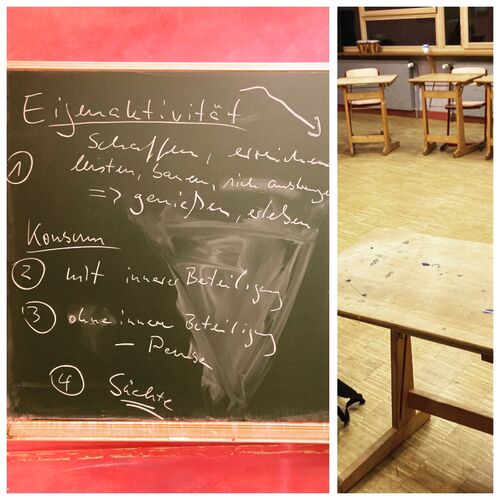 Eigenaktivität
① Schaffen, erreichen
leisten, bauen, sich anstrengen
=> genießen, erleben
Konsum
② mit innerer Beteiligung
③ ohne innere Beteiligung
– Pause
④ Süchte